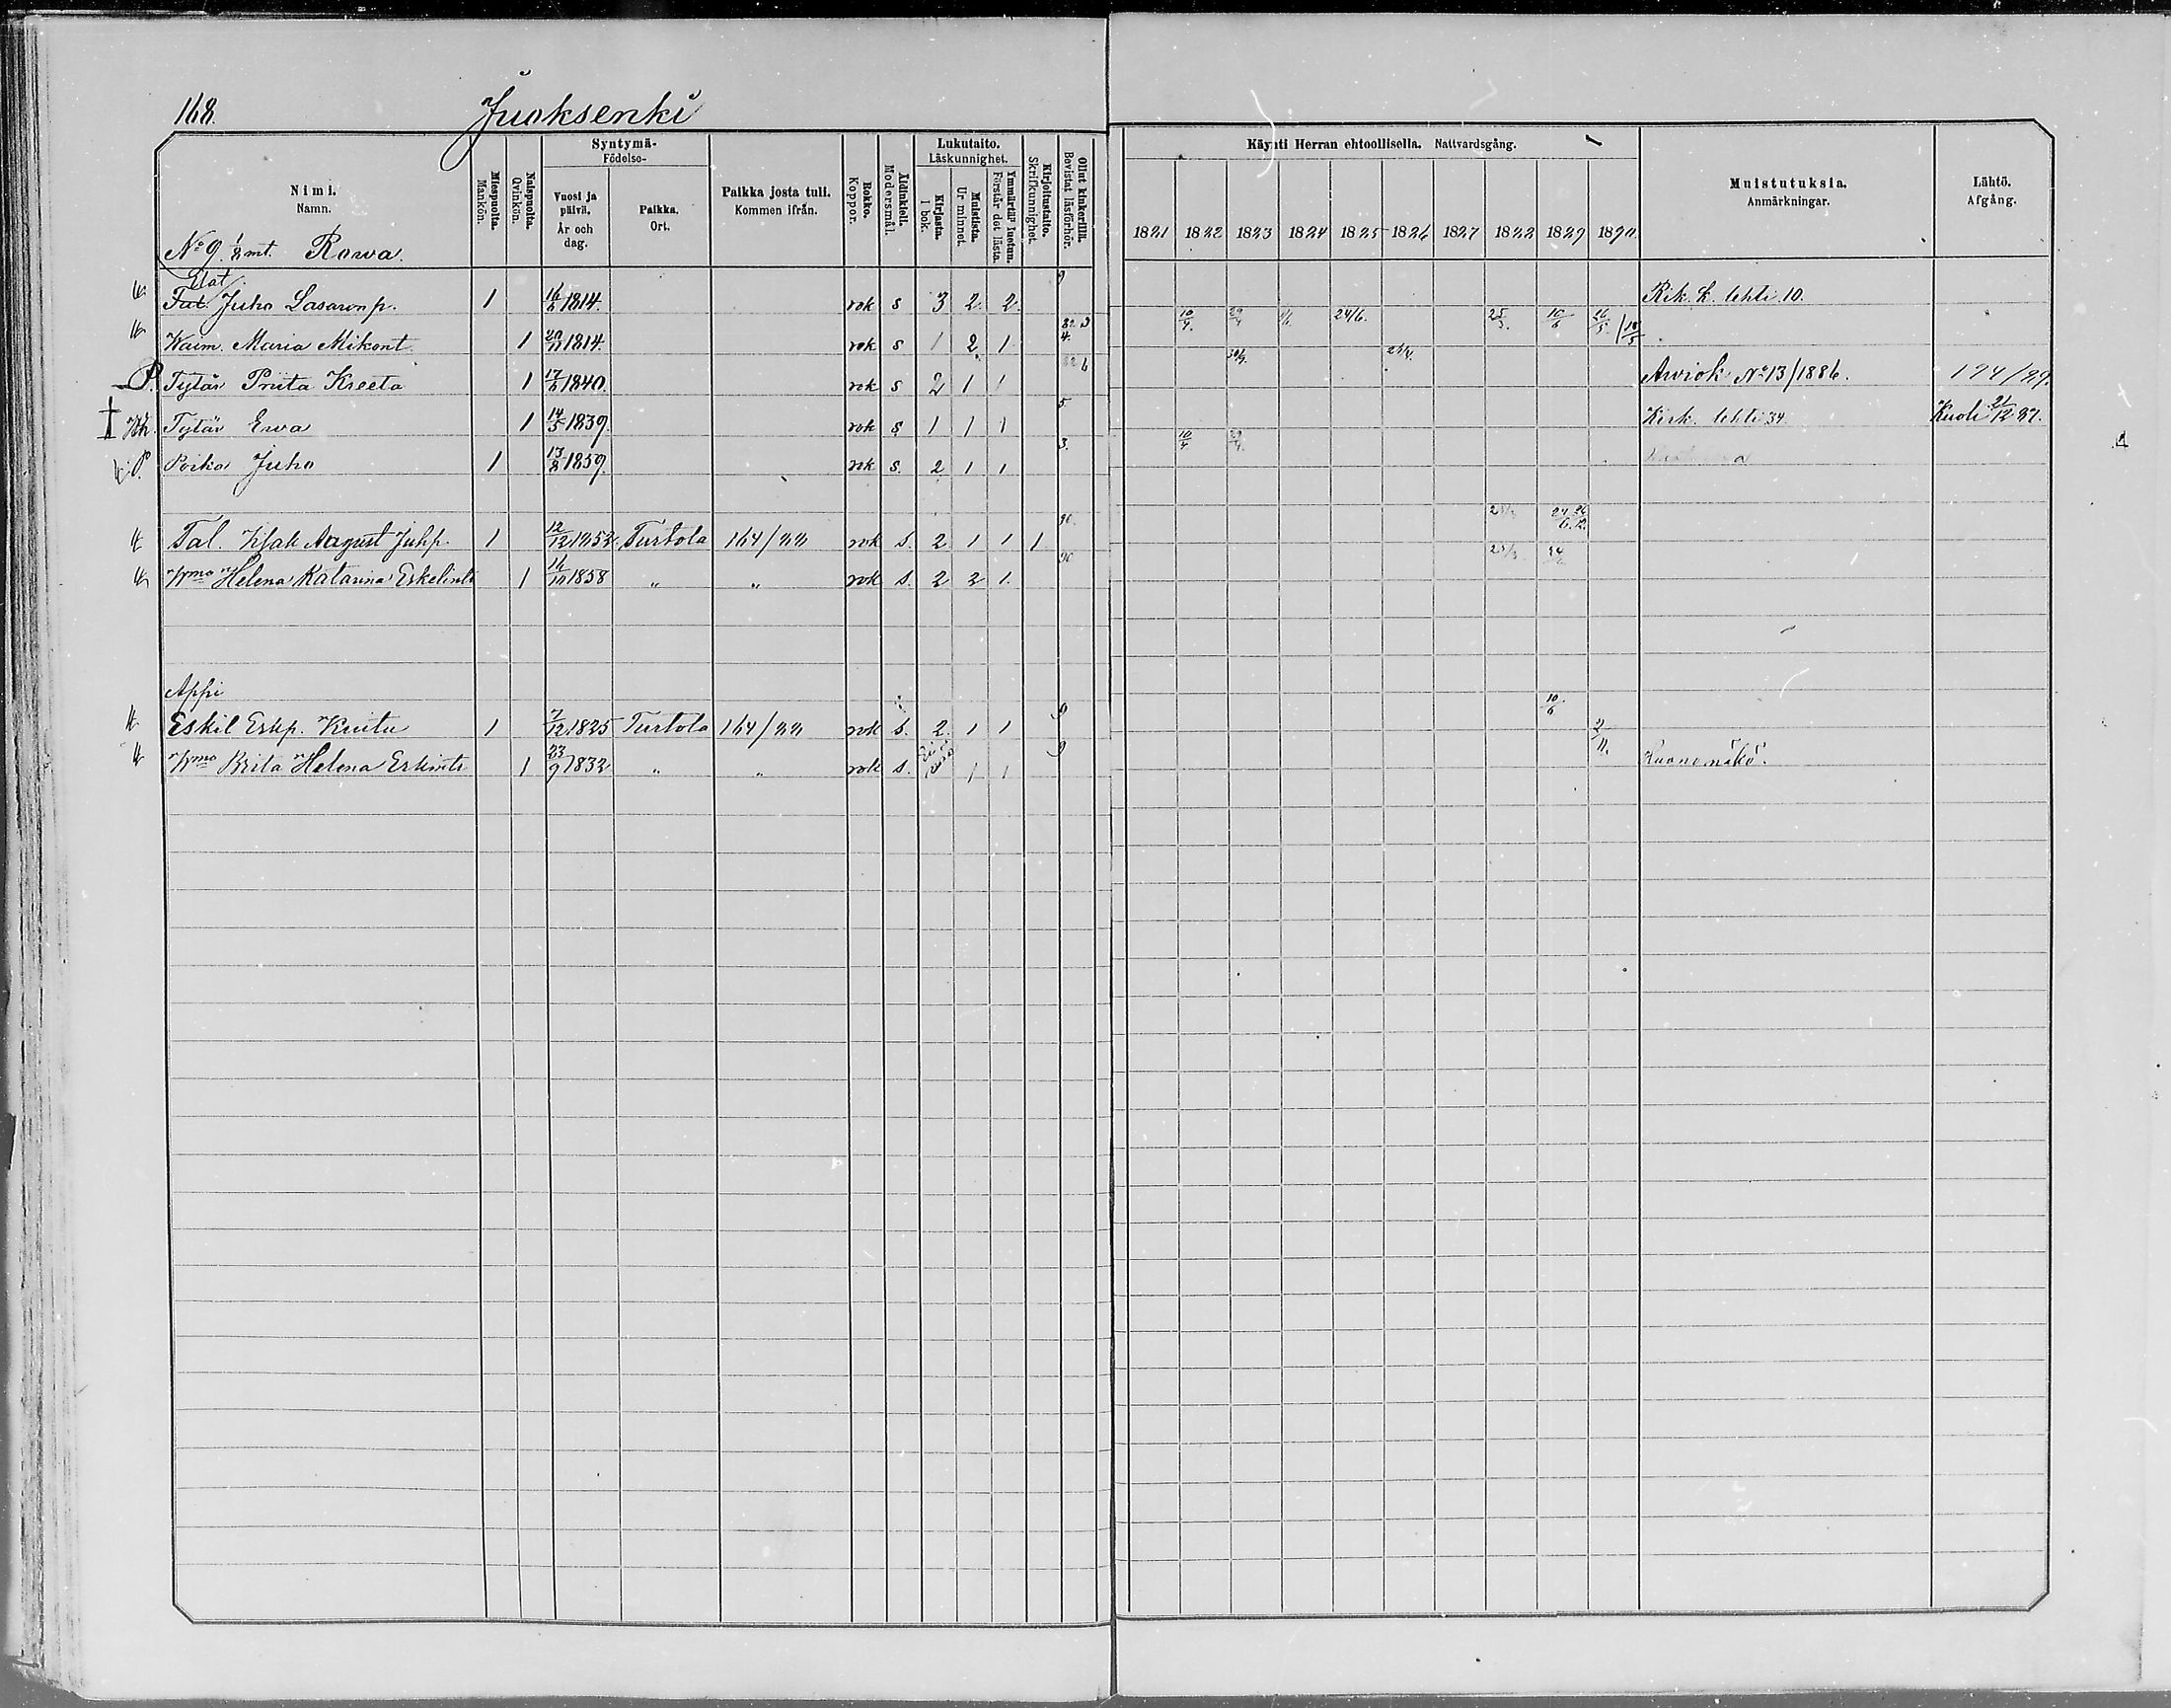 168. Juoksenki
Syntymä-
Födelse-
Lukutaito.
Läskunnighet.
Nimi.
Namn.
Miespuolta.
Mankön.
Naispuolta.
Qvinkön.
Vuosi ja
päivä.
År och
dag.
Paikka.
Ort.
Paikka josta tuli.
Kommen ifrån.
Rokko.
Koppor.
Äidinkieli.
Modersmål.
Kirjasta.
I bok.
Muistista.
Ur minnet.
Ymmärtää luetun.
Förstår det lästa.
Kirjoitustaito.
Skrifkunnighet.
Ollut kinkerillä.
Bevistat läsförhör.
Käynti Herran ehtoollisella. Nattvardsgång.
1881 1882 1883 1884 1885 1886 1887 1888 1889 1890
Muistutuksia.
Anmärkningar.
Lähtö.
Afgång.
No 9. 1/8 mt. Rowa.
Elat.
Tal. Juho Lasaronp. 1 16/6 1814. rok s 3 2. 2. 9 Rik. k. lehti 10.
Waim. Maria Mikont. 1 20/11 1814. rok s 1 2 1 4. 10/4. 24/6. 25/3. 10/6 16/5.
P. Tytär Priita Kreeta 1 17/6 1840. rok s 2 1 1 Awiok No 13/1886. 174/89.
† Tytär Ewa 1 14/5 1839. rok s 1 1 1 5. Kirk. lehti 34. Kuoli 21/12 87.
P. Poika Juho 1 13/8 1859. rok s. 2 1 1 3. 10/4
Tal. Isak August Juhp. 1 12/12 1852. Turtola 164/88 rok s. 2 1 1 1 90.
Wmo Helena Katarina Eskelintr 1 16/10 1858 " " rok s. 2 2 1. 90
Appi
Eskil Eskp. Kuitu 1 7/12 1825 Turtola 164/88 rok s. 2. 1 1 9 10/6
Wmo Brita Helena Erkintr 1 23/9 1832 " " rok s. 1 1 9 2/11. Huononäkö.